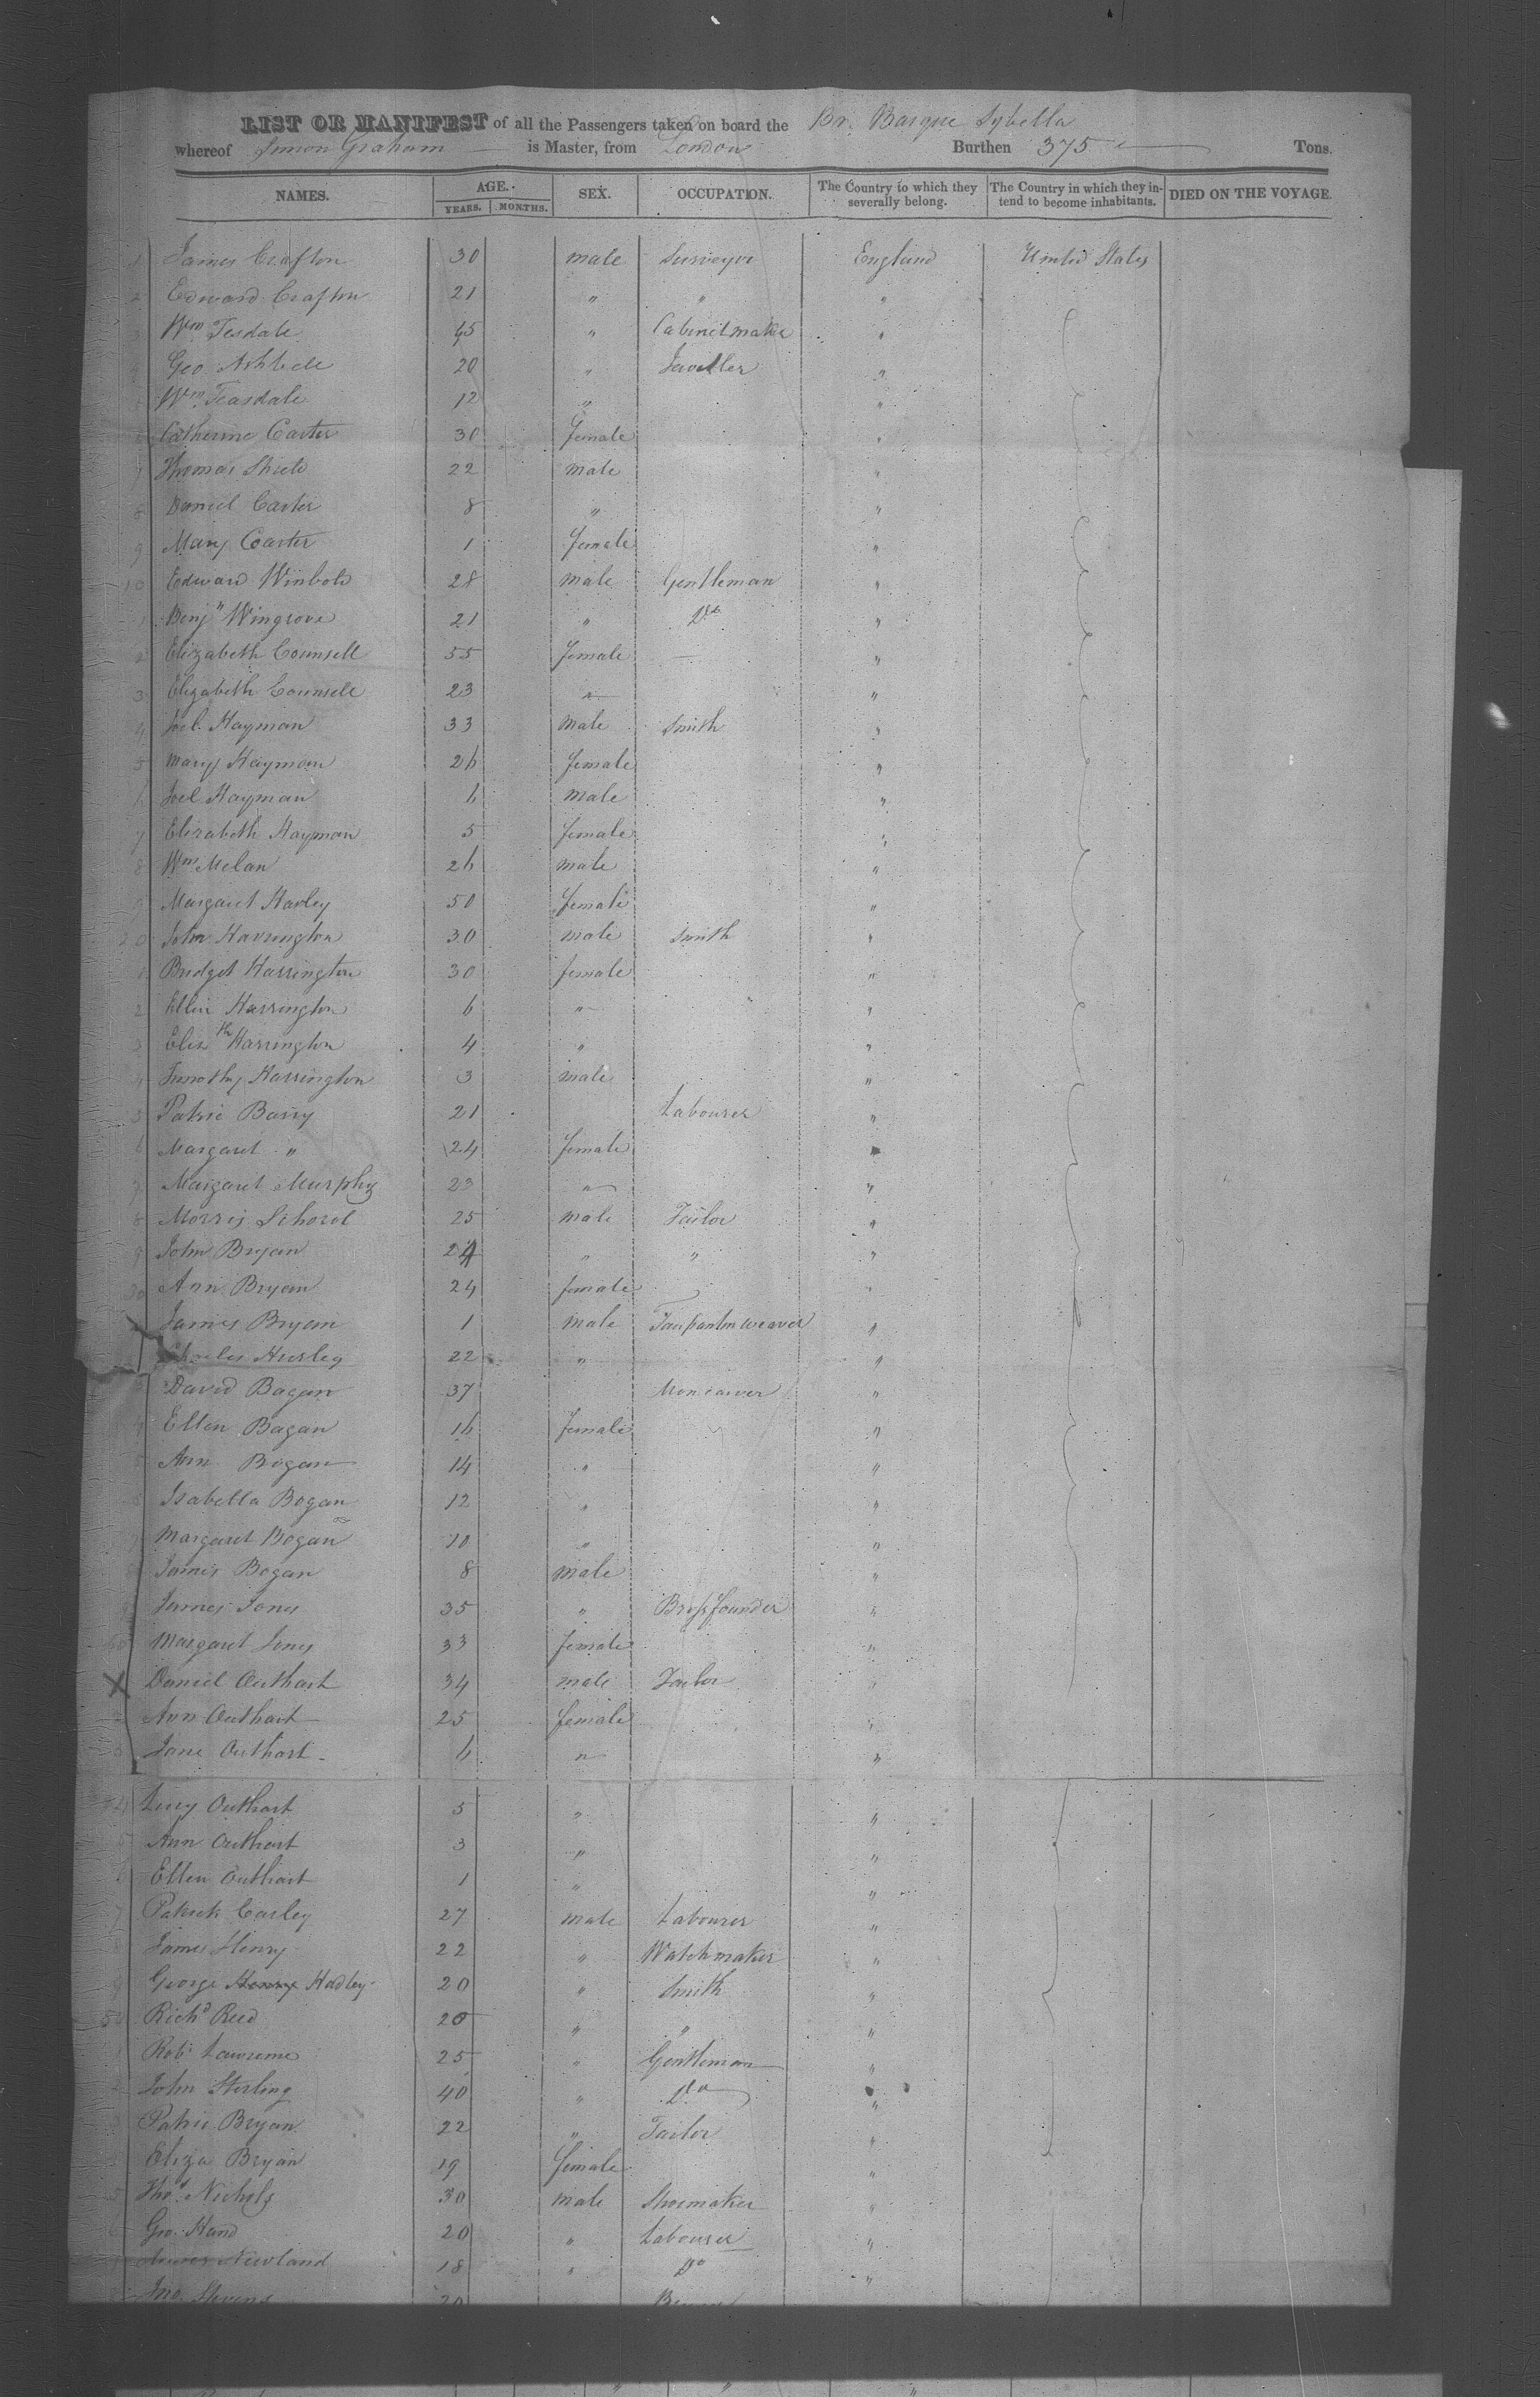 LIST OR MANIFEST of all the Passengers taken on board the Br. Barque Sybella
whereof Simon Graham is Master, from London Burthen 375 Tons.
NAMES. AGE. SEX. OCCUPATION. The Country to which they severally belong. The Country in which they intend to become inhabitants. DIED ON THE VOYAGE.
YEARS. MONTHS.
1 James Crafton 30 male Surveyor England United States
2 Edward Crafton 21 " " "
Wm Tesdale 45 " Cabinet maker "
Geo 20 " "
Wm Teasdale 12 " "
Catherine Carter 30 female "
7 Thomas 22 male "
8 Daniel Carter 8 " "
9 Mary Carter 1 female "
10 Edward 28 male Gentleman "
1 Benjn Wingrove 21 " Do "
2 Elizabeth Counsell 55 female — "
3 Elizabeth Counsell 23 " "
4 Joel Hayman 33 male Smith "
5 Mary Hayman 26 female "
6 Joel Hayman 6 male "
7 Elizabeth Hayman 5 female "
8 Wm Melan 26 male "
9 Margaret Harley 50 female "
20 John Harrington 30 male Smith "
1 Bridget Harrington 30 female "
2 Ellin Harrington 6 " "
3 Elizth Harrington 4 " "
4 Timothy Harrington 3 male "
5 Patric Barry 21 Labourer "
6 Margaret " 24 female "
7 Margaret Murphy 23 " "
8 Morris 25 male Tailor "
9 John Bryan 24 " " "
30 Ann Bryan 24 female "
James Bryan 1 male weaver "
Charles Hurley 22 " "
David Bogan 37 "
Ellen Bogan 16 female "
Ann Bogan 14 " "
Isabella Bogan 12 " "
7 Margaret Bogan 10 " "
James Bogan 8 male "
James Jones 35 " Brassfounder "
40 Margaret Jones 33 female "
X Daniel Outhart 34 male Tailor "
2 Ann Outhart 25 female "
3 Jane Outhart 6 " "
44 Lucy Outhart 5 " "
5 Ann Outhart 3 " "
6 Ellen Outhart 1 " "
7 Patrick Carley 27 male Labourer "
James Henry 22 " Watchmaker "
9 George Henry Hadley 20 " Smith "
50 Richd Reed 20 " " "
1 Robt Lawrence 25 " Gentleman "
2 John Sterling 40 " Do "
3 Patric Bryan 22 " Tailor "
Eliza Bryan 19 female "
5 Thos Nichols 30 male Shoemaker "
6 Geo. Hand 20 " Labourer "
Newland 18 " Do "
Jno. Stevens 20